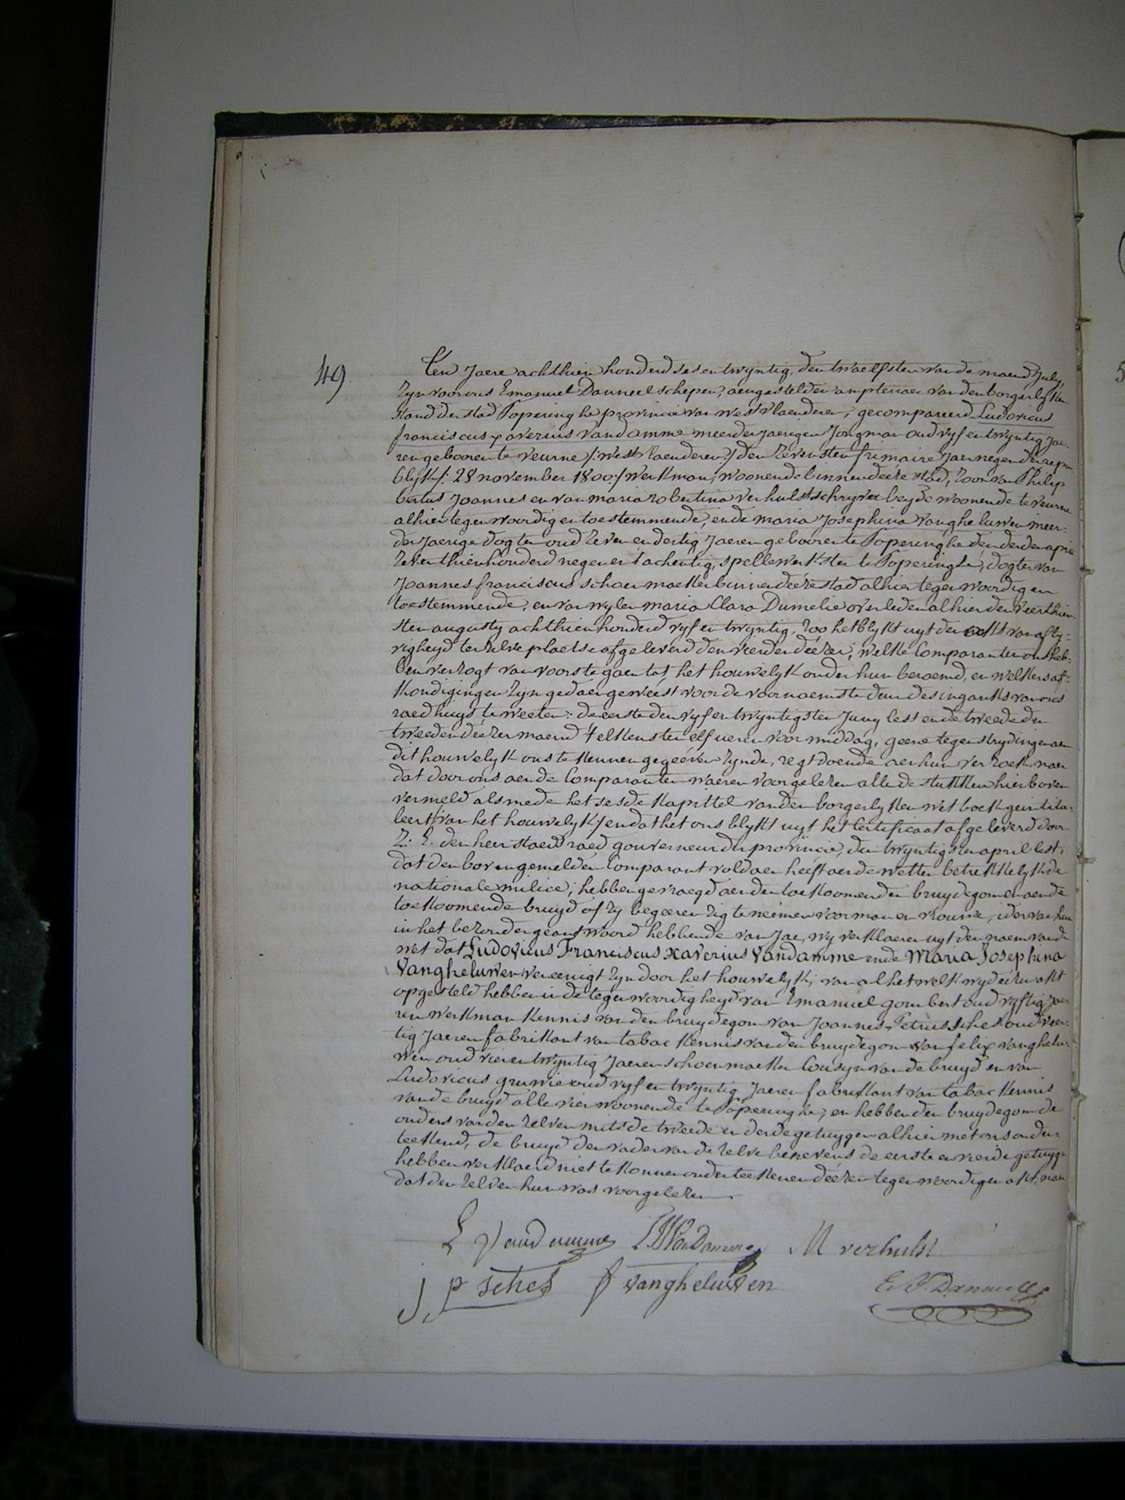 49
Ten Jaere achthien honderd ses en twyntig, den twaelfsten van de maend July,
zyn voor ons Emanuel Danneel schepen, aengestelden amptenaer van den borgerlyken
stand der stad Poperinghe provincie van westvlaenderen, gecompareerd Ludovicus
franciscus xaverius Vandamme meerderjaerigen Jongman oud vyf en twyntig Jae-
ren geboren te veurne /:westvlaenderen:/ den zevensten frimaire Jaer negen der repu
blijk /: 28 november 1800 / werkman, woonende binnen deeze stad, zoon van Philip
bertus Joannes en van maria robertina verhulst schryver beyde woonende te veurne
alhier tegenwoordig en toestemmende, ende maria Josephina vangheluwen meer-
derjaerige dogter oud zeven en dertig Jaeren geboren te Poperinghe den derden april
zeventhien honderd negen en tachentig, spellewerkster te Poperinghe, dogter van
Joannes franciscus schoenmaeker binnen deeze stad alhier tegenwoordig en
toestemmende, en van wylen maria Clara Dumelie overleden alhier den veerthien-
sten augusty achthien honderd vyf en twyntig, zoo het blykt uyt den akt van afly-
vigheyd ter zelve plaetse afgeleverd den vierden deezer, welke Comparanten ons heb-
ben verzogt van voorts te gaen tot het houwelyk onder hun beraemd, en welkers af-
kondigingen zyn gedaen geweest voor de voornaemste deur des ingancks van ons
raedhuys te weeten: de eerste den vyf en twyntigsten Juny lest en de tweede den
tweeden deezer maend telkens ten elf ueren voor middag, geene tegenstrydingen aen
dit houwelyk ons te kennen gegeéven zynde, regt doende aen hun verzoek naer
dat door ons aen de Comparanten waeren voorgelezen alle de stukken hier boven
vermeld als mede het sesde kapittel van den borgerlyken wetboek geintitu-
leert /van het houwelyk/ en dat het ons blykt uyt het Certificaat afgeleverd door
Z: E. den heer staedsraed gouverneur der provincie, den twyntigsten april lest,
dat den bovengemelden Comparant voldaen heeft aen de wetten betrekkelyk de
nationale milice; hebben gevraegd aen den toekoomenden bruydegom en aen de
toekoomende bruyd of zy begeeren zig te neémen voor man en vrouwe, ider van hun
in het bezonder geantwoord hebbende van Jae, wy verklaeren uyt den naem van de
wet dat Ludovicus Franciscus xaverius Vandamme ende Maria Josephina
Vangheluwen vereenigt zyn door het houwelyk; van al het welk wy deezen akt
opgesteld hebben in de tegenwoordigheyd van Emanuel gombert oud vyftig jae-
ren werkman kennis van den bruydegom van Joannes Petrus Sches oud veer-
tig Jaeren fabrikant van tabac kennis van den bruydegom van felix vanghelu-
wen oud vier en twyntig Jaeren schoenmaeker Cousyn van de bruyd en van
Ludovicus gruwie oud vyf en twyntig Jaeren fabrikant van tabac kennis
van de bruyd alle vier woonende te Poperinghe, en hebben den bruydegom de
ouders van den zelven mitsde tweede en derde getuygen alhier met ons onder-
teekend, de bruyd den vader van de zelve benevens de eerste en vierde getuyge
hebben verklaerd niet te konnen onderteekenen deézen tegenwoordigen akt, naer
dat den zelven hun was voorgelezen
L Vandamme PJVanDamme M verhulst
J, P Sches F vangheluwen E. J. Danneel